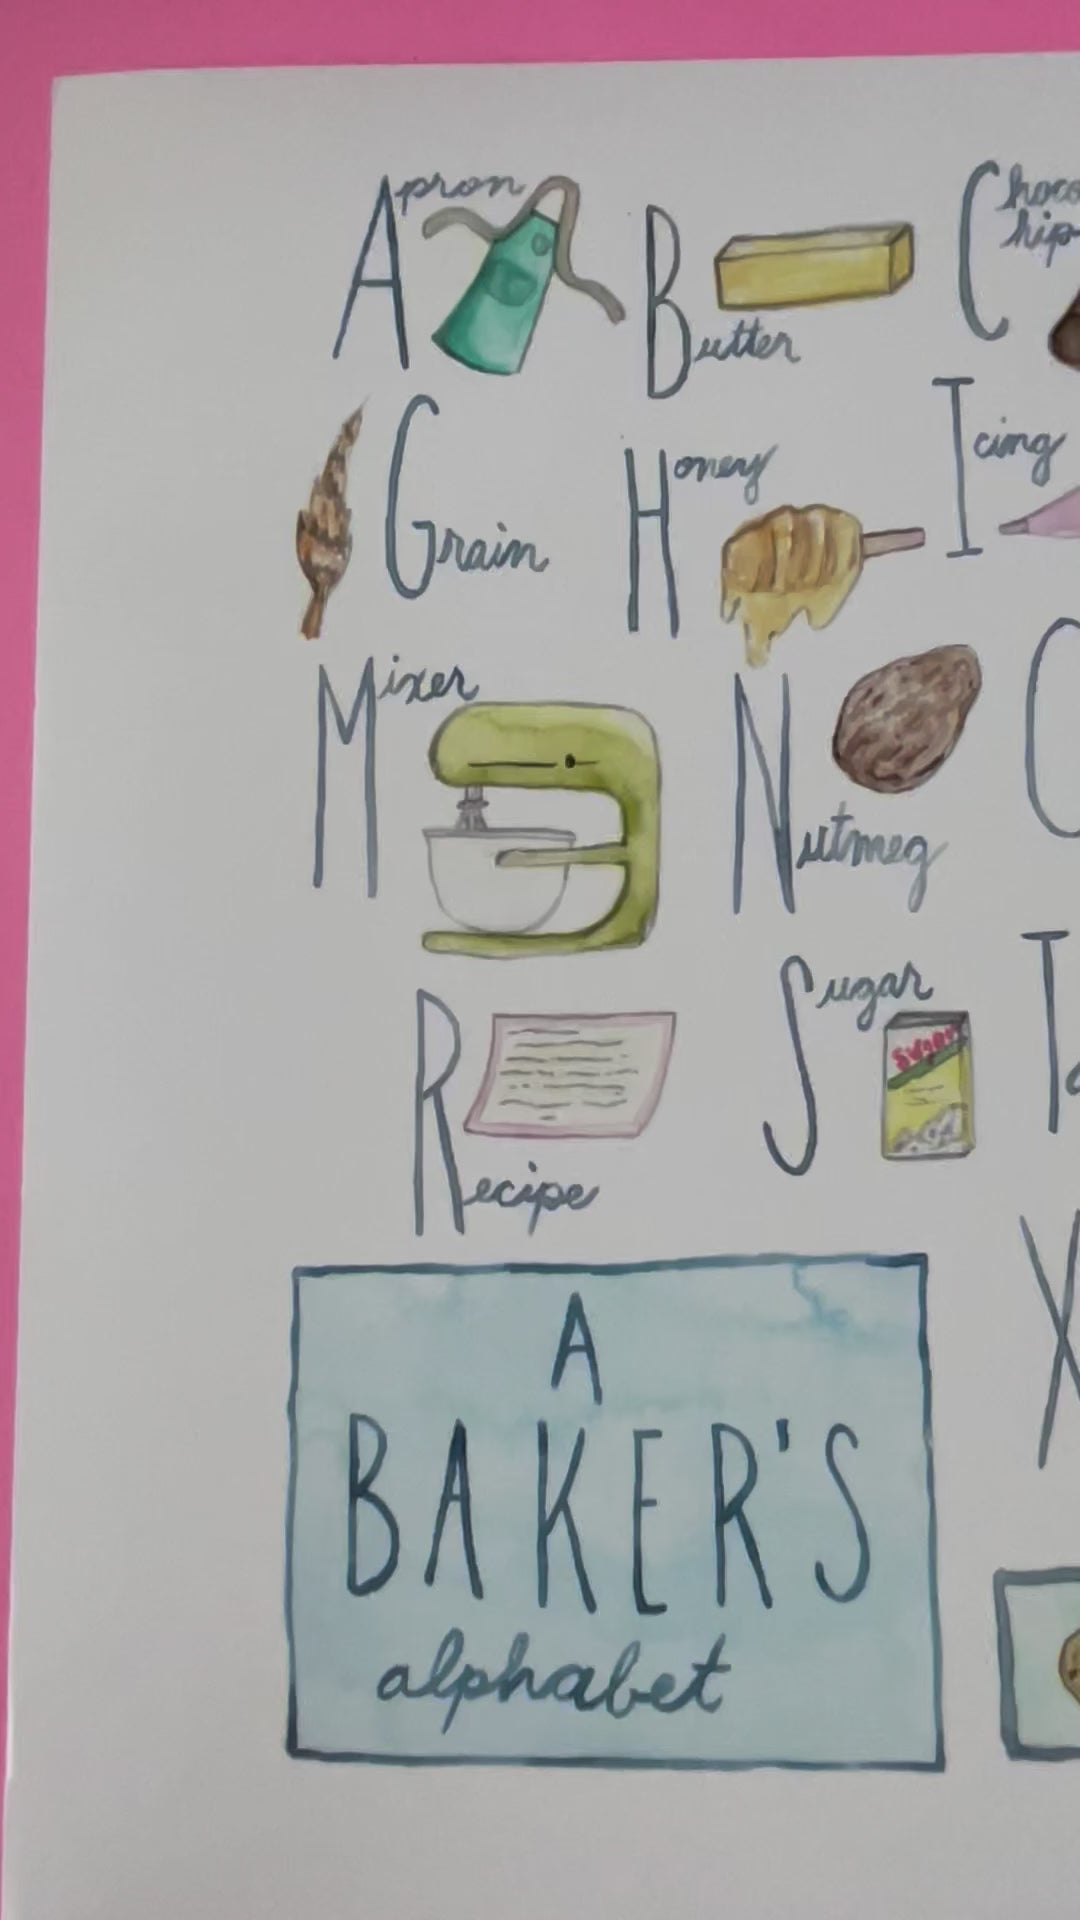 Apron
Butter
Grain
Honey
Icing
Mixer
Nutmeg
Recipe
Sugar
SUGAR
X
A
BAKER'S
alphabet